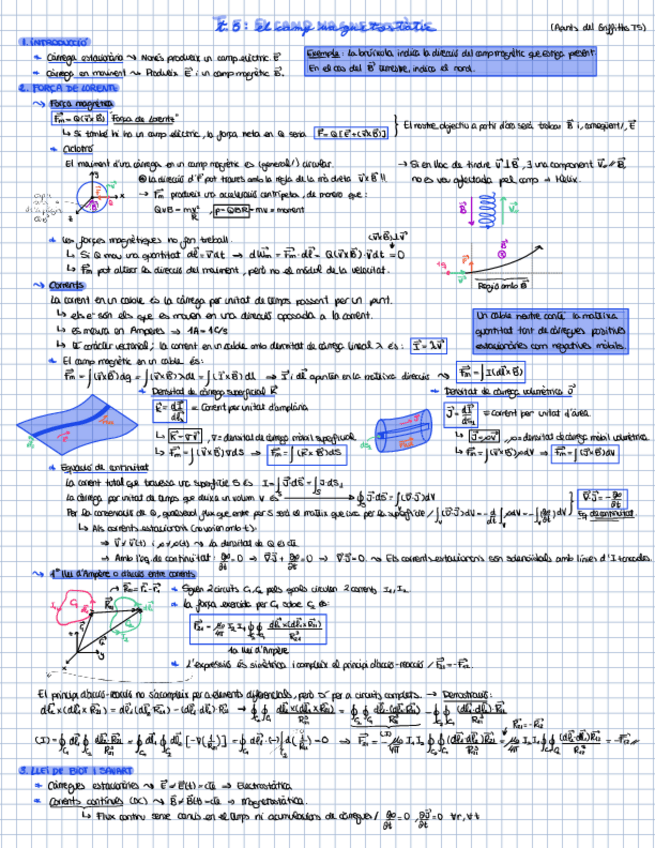 T.5: El camp magnetostàtic
(Apunts del Griffiths 75)
1. INTRODUCCIÓ
Càrrega estacionària ⇝ Només produeix un camp elèctric E⃗
Càrrega en moviment ⇝ Produeix E⃗ i un camp magnètic B⃗.
Exemple: La brúixola indica la direcció del camp magnètic que estigui present.
En el cas del B⃗ terrestre, indica el nord.
2. FORÇA DE LORENTZ
⇝ Força magnètica
F⃗m = Q(v⃗×B⃗) "Força de Lorentz"
↳ Si també hi ha un camp elèctric, la força neta en Q seria F⃗ = Q[E⃗+(v⃗×B⃗)]
El nostre objectiu a partir d'ara serà trobar B⃗ i, conseqüent/, E⃗
Ciclotró
El moviment d'una càrrega en un camp magnètic és (general/) circular.
La direcció d'F⃗ pot trobar-se amb la regla de la mà dreta v⃗×B⃗!!
→ F⃗m produeix una acceleració centrípeta, de manera que:
QvB = m v²/R, p = QBR = mv = moment
→ Si en lloc de tindre v⃗⊥B⃗, ∃ una component v⃗∥ ∥ B⃗
no es veu afectada pel camp → Hèlix.
Les forces magnètiques no fan treball.
↳ Si Q mou una quantitat dl⃗ = v⃗dt → dWm = F⃗m·dl⃗ = Q(v⃗×B⃗)·v⃗dt = 0
(v⃗×B⃗)⊥v⃗
↳ F⃗m pot alterar la direcció del moviment, però no el mòdul de la velocitat.
Regió amb B⃗
⇝ Corrents
La corrent en un cable és la càrrega per unitat de temps passant per un punt.
↳ els e⁻ són els que es mouen en una direcció oposada a la corrent.
↳ es mesura en Amperes → 1A = 1C/s
↳ té caràcter vectorial; la corrent en un cable amb densitat de càrrega lineal λ és: I⃗ = λv⃗
Un cable neutre conté la mateixa
quantitat tant de càrregues positives
estacionàries com negatives mòbils.
El camp magnètic en un cable és:
F⃗m = ∫(v⃗×B⃗)dq = ∫(v⃗×B⃗)λdl = ∫(I⃗×B⃗)dl → I⃗ i dl⃗ apunten en la mateixa direcció ⇝ F⃗m = ∫I(dl⃗×B⃗)
Densitat de càrrega superficial K⃗
K⃗ = dI⃗/dl⊥ = Corrent per unitat d'amplària
↳ K⃗ = σv⃗, σ = densitat de càrrega mòbil superficial
↳ F⃗m = ∫(v⃗×B⃗)σdS ⇒ F⃗m = ∫(K⃗×B⃗)dS
Densitat de càrrega volumètrica J⃗
J⃗ = dI⃗/dS⊥ = Corrent per unitat d'àrea
↳ J⃗ = ρv⃗, ρ = densitat de càrrega mòbil volumètrica
↳ F⃗m = ∫(v⃗×B⃗)ρdV ⇒ F⃗m = ∫(J⃗×B⃗)dV
Equació de continuïtat
La corrent total que travessa una superfície S és I = ∫J⃗·dS⃗ = ∫J dS⊥
La càrrega per unitat de temps que deixa un volum V és → ∮J⃗·dS⃗ = ∫(∇⃗·J⃗)dV
∇⃗·J⃗ = −∂ρ/∂t
Eq. de continuïtat
↳ Als corrents estacionaris (no varien amb t):
→ v⃗ ≠ v⃗(t) i ρ ≠ ρ(t) ⇝ la densitat de Q és ct
→ Amb l'eq. de continuïtat: ∂ρ/∂t = 0 → ∇⃗·J⃗ + ∂ρ/∂t = 0 → ∇⃗·J⃗ = 0. ⇝ Els corrents estacionaris són solenoïdals amb línies d'I tancades.
⇝ 1ª llei d'Ampère o d'acció entre corrents
→ R⃗₂₁ = r⃗₂ − r⃗₁
Siguen 2 circuits C₁, C₂ pels quals circulen 2 corrents I₁, I₂
La força exercida per C₁ sobre C₂ és:
F⃗₂₁ = μ₀/4π I₂I₁ ∮∮ dl⃗₂×(dl⃗₁×R⃗₂₁)/R₂₁³
1a llei d'Ampère
L'expressió és simètrica i compleix el principi d'acció-reacció / F⃗₂₁ = −F⃗₁₂.
El principi d'acció-reacció no s'acompleix per a elements diferencials, però sí per a circuits complets. → Demostració:
3. LLEI DE BIOT I SAVART
Càrregues estacionàries ⇝ E⃗ ≠ E⃗(t) = ct ⇒ Electrostàtica
Corrents continus (DC) ⇝ B⃗ ≠ B⃗(t) = ct ⇒ Magnetostàtica.
↳ Flux continu sense canvis en el temps ni acumulacions de càrregues / ∂ρ/∂t = 0, ∂J⃗/∂t = 0 ∀r, ∀t